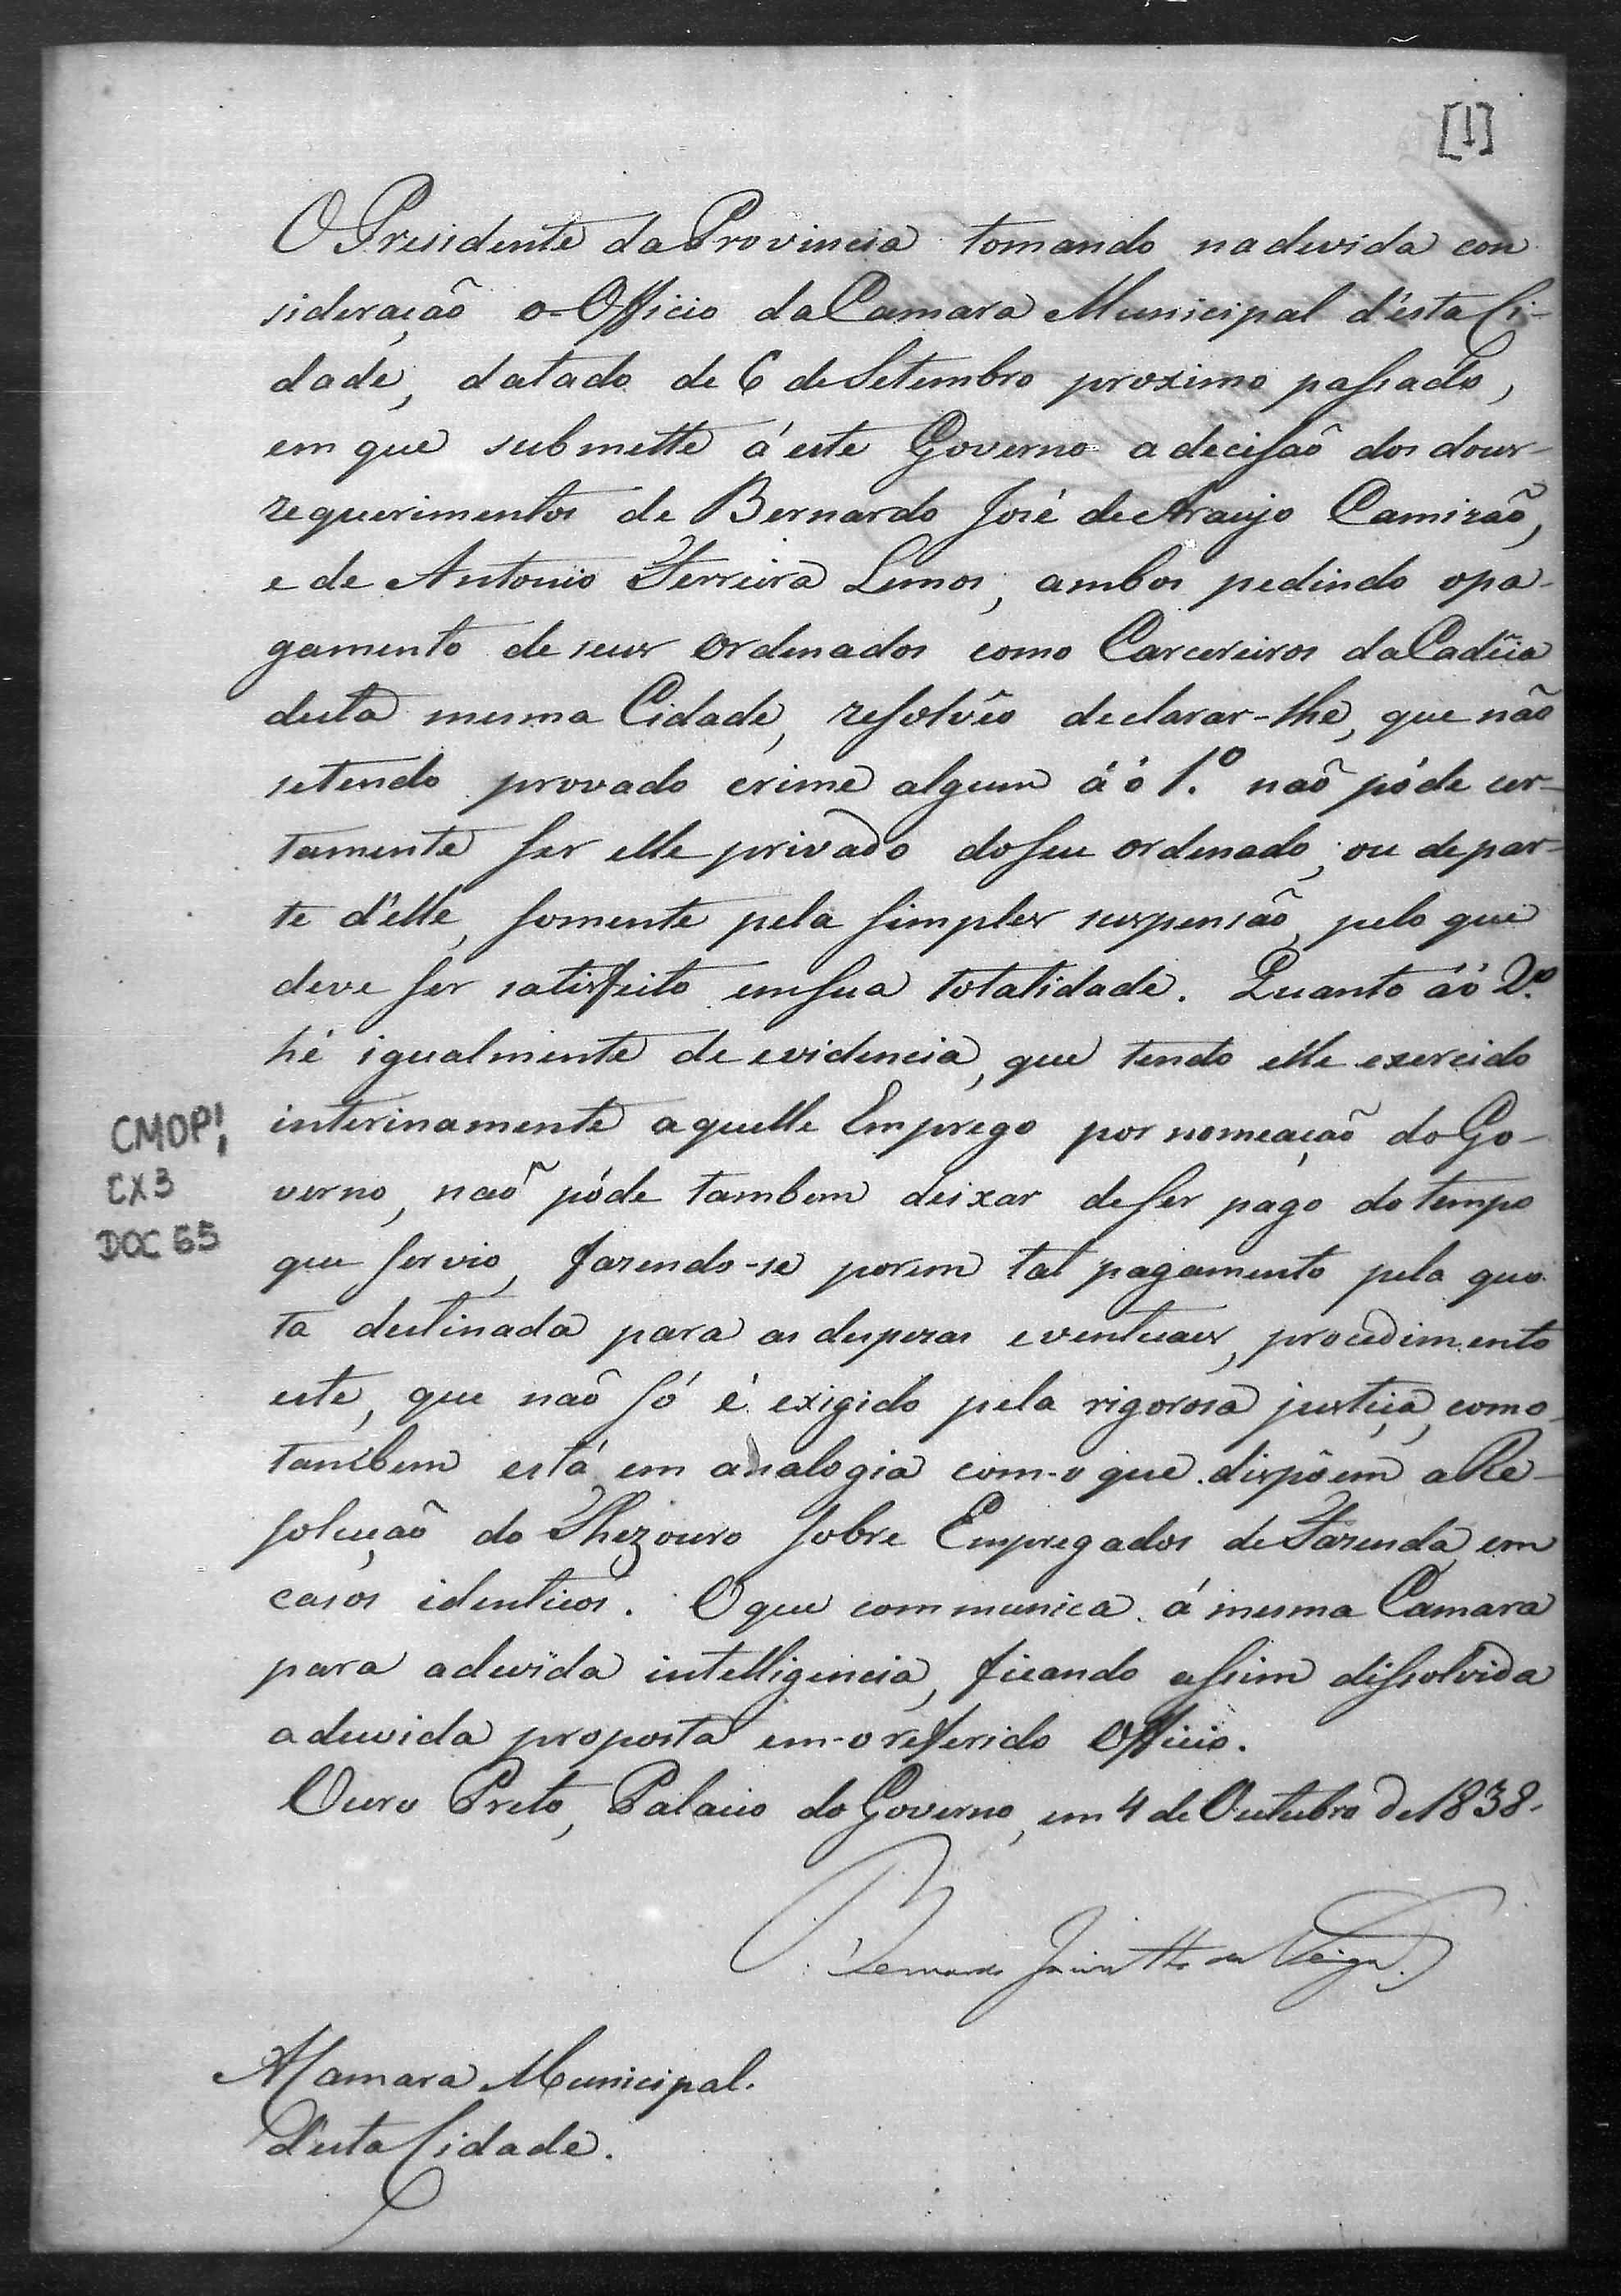 [1]
O Presidente da Provincia tomando na devida con
sideração o Officio da Camara Municipal d'esta Ci-
dade, datado de 6 de Setembro proximo passado,
em que submette á este Governo a decisaõ dos dous
requerimentos de Bernardo José de Araujo Camizão,
e de Antonio Ferreira Lemos, ambos pedindo o pa-
gamento de seus ordenados como Carcereiros da Cadêia
desta mesma Cidade, resolvêo declarar-lhe, que não
se tendo provado crime algum á ó 1.º naõ póde cer-
tamente ser elle privado do seu ordenado, ou de par-
te d'elle, somente pela simples suspensão, pelo que
deve ser satisfeito em sua totalidade. Quanto áó 2.º
hé igualmente de evidencia, que tendo elle exercido
interinamente aquelle Emprego por nomeação do Go-
verno, naõ póde tambem deixar de ser pago do tempo
que servio, fazendo-se porem tal pagamento pela quo
ta destinada para as despezas eventuaes, procedimento
este, que naõ só é exigido pela rigorosa justiça, como
tambem está em analogia com o que dispôem a Re-
soluçaõ do Thezouro sobre Empregados de Fazenda em
casos identicos. O que communica á mesma Camara
para a devida intelligencia, ficando assim dissolvida
a duvida proposta em o referido Officio.
Ouro Preto, Palacio do Governo, em 4 de Outubro de 1838.
Bernardo Jacintho da Veiga.
Á Camara Municipal
D'esta Cidade.
CMOP!
CX3
DOC 65